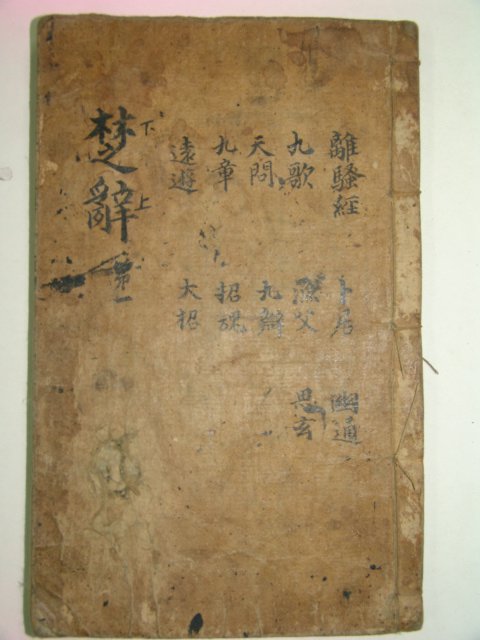 離騷經
九歌
天問
九章
遠遊
卜居
漁父
九辯
招魂
大招
幽通
思玄
楚辭
下
上